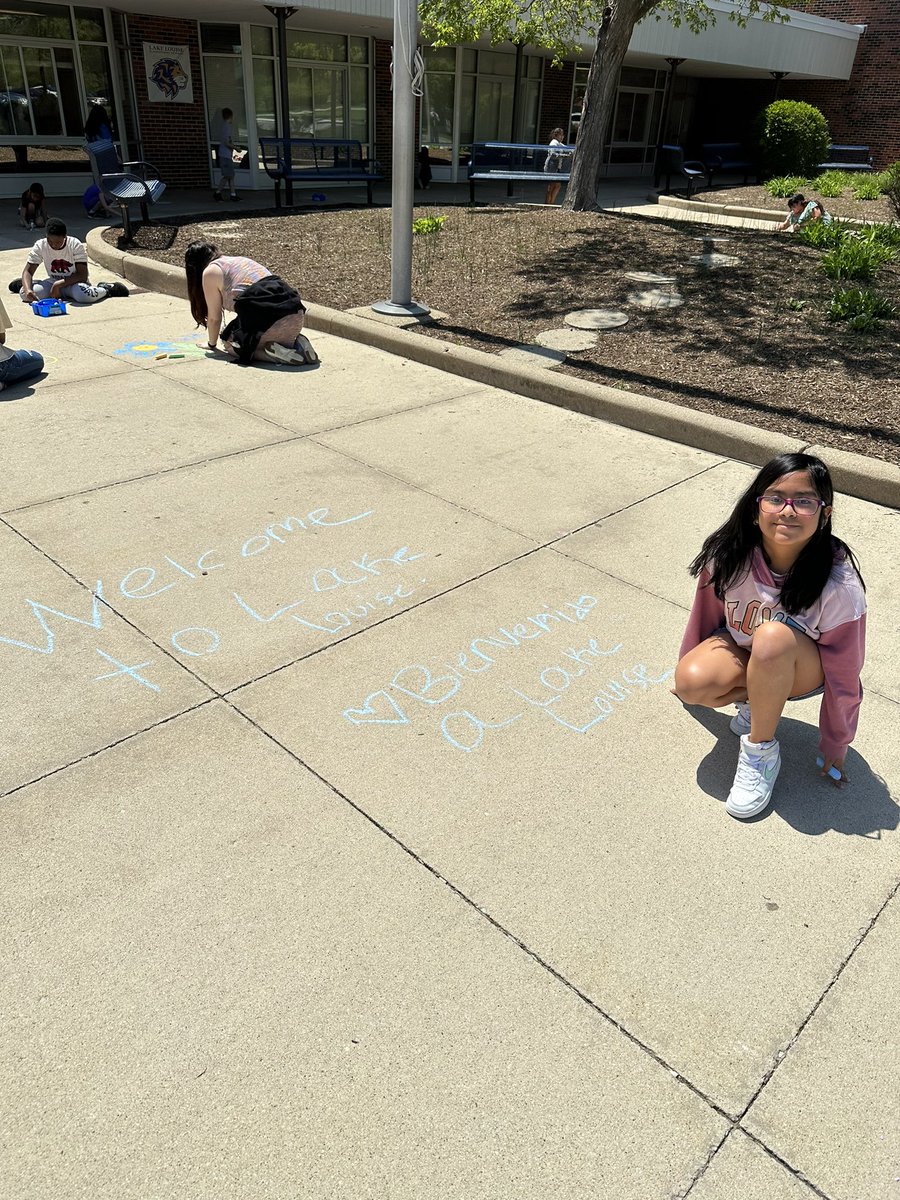 LAKE LOUISE
Welcome
to Lake
Louise.
Bienvenidos
a Lake
Louise